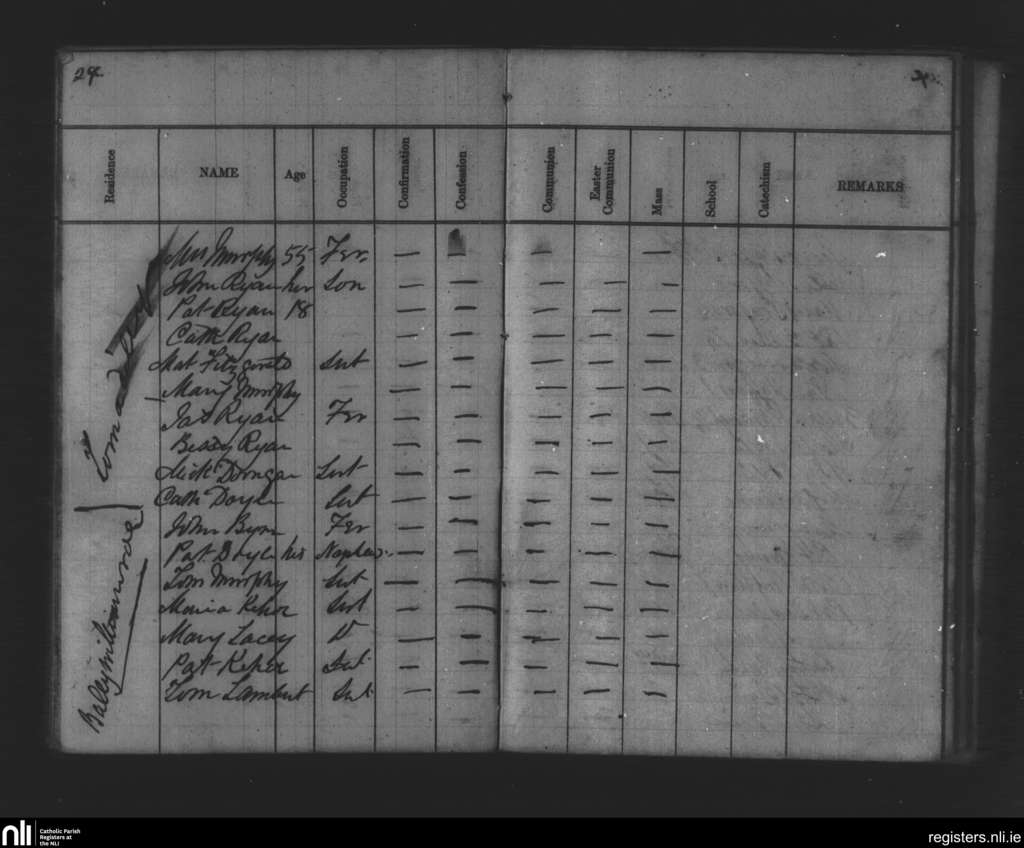 24
Residence NAME Age Occupation Confirmation Confession Communion Easter Communion Mass School Catechism REMARKS
Mrs Murphy 55 Fer
John Ryan her Son
Pat Ryan 18
Cath Ryan
Mat Fitzgerald Svt
Mary Murphy
Jas Ryan Fer
Bessy Ryan
Mick Doogan Svt
Cath Doyle Svt
John Byrne Fer
Pat Doyle his Nephew
Tom Murphy Svt
Maria Kehoe Svt
Mary Lacey D
Pat Kehoe Svt
Tom Lambert Svt
Ballymilliamroe
nli Catholic Parish
Registers at
the NLI
registers.nli.ie